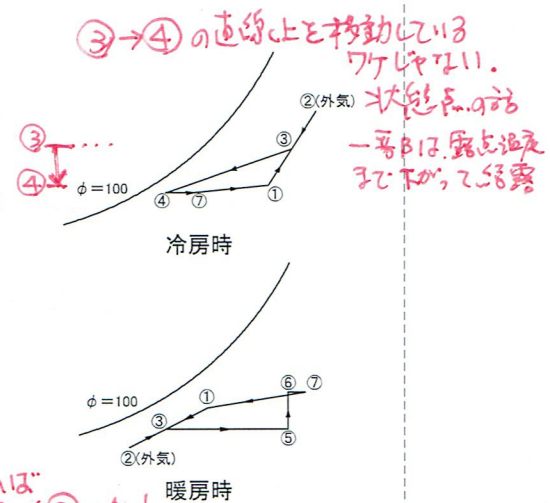 ③→④の直線上を移動している
ワケじゃない。
状態点の話
一番Bは、露点温度
まで下がって結露
③
④
②(外気)
③
φ=100
④
⑦
①
冷房時
φ=100
①
⑥
⑦
③
⑤
②(外気)
暖房時
れば